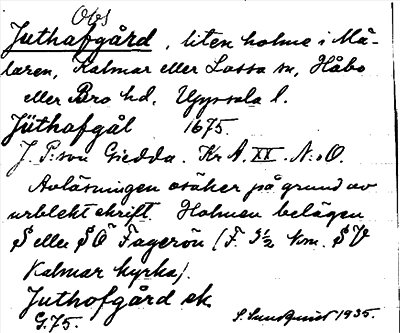 Obs
Juthafgård, liten holme i Mä-
laren, Kalmar eller Lossa sn, Håbo
eller Bro hd, Uppsala l.
Jüthafgål 1675.
J. P:son Giedda. Kr A. XX. N:o O.
Avläsningen osäker på grund av
urblekt skrift. Holmen belägen
S eller SÖ Fagerön (F. 3½ km. SV
Kalmar kyrka).
Juthofgård ek.
G.75. S. Sundquist 1935.